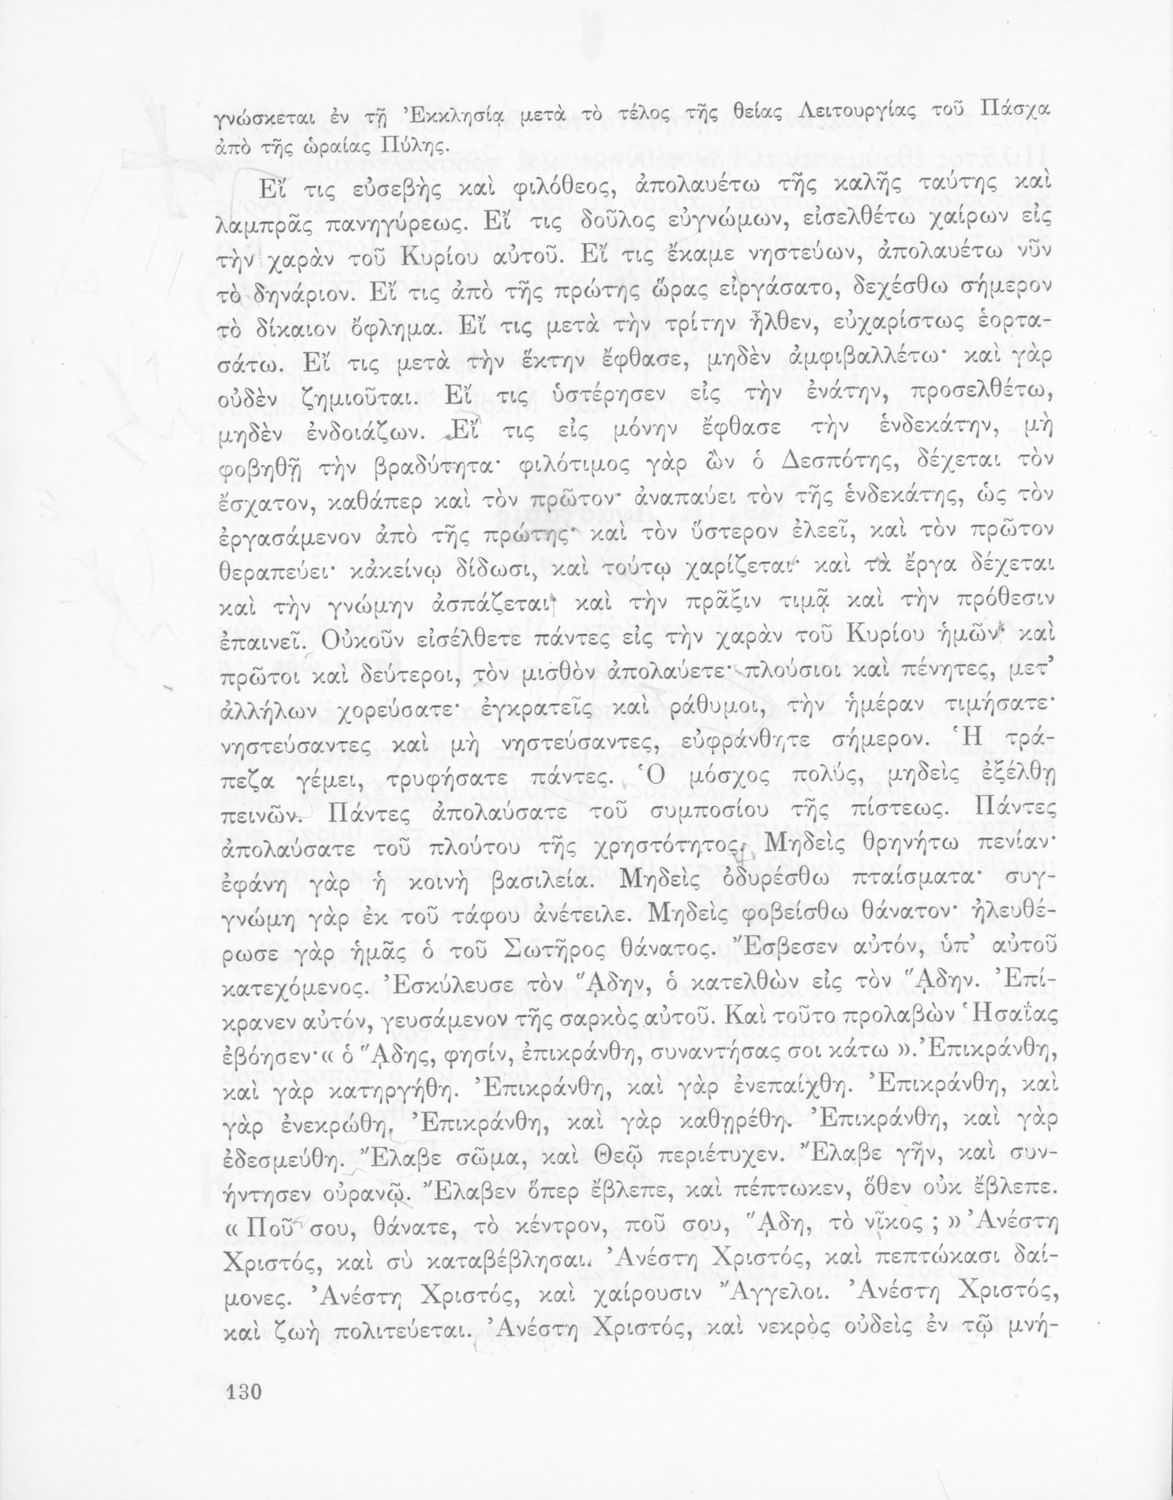 γνώσκεται ἐν τῇ Ἐκκλησίᾳ μετὰ τὸ τέλος τῆς θείας Λειτουργίας τοῦ Πάσχα
ἀπὸ τῆς ὡραίας Πύλης.
Εἴ τις εὐσεβὴς καὶ φιλόθεος, ἀπολαυέτω τῆς καλῆς ταύτης καὶ
λαμπρᾶς πανηγύρεως. Εἴ τις δοῦλος εὐγνώμων, εἰσελθέτω χαίρων εἰς
τὴν χαρὰν τοῦ Κυρίου αὐτοῦ. Εἴ τις ἔκαμε νηστεύων, ἀπολαυέτω νῦν
τὸ δηνάριον. Εἴ τις ἀπὸ τῆς πρώτης ὥρας εἰργάσατο, δεχέσθω σήμερον
τὸ δίκαιον ὄφλημα. Εἴ τις μετὰ τὴν τρίτην ἦλθεν, εὐχαρίστως ἑορτα-
σάτω. Εἴ τις μετὰ τὴν ἕκτην ἔφθασε, μηδὲν ἀμφιβαλλέτω· καὶ γὰρ
οὐδὲν ζημιοῦται. Εἴ τις ὑστέρησεν εἰς τὴν ἐνάτην, προσελθέτω,
μηδὲν ἐνδοιάζων. Εἴ τις εἰς μόνην ἔφθασε τὴν ἑνδεκάτην, μὴ
φοβηθῇ τὴν βραδύτητα· φιλότιμος γὰρ ὢν ὁ Δεσπότης, δέχεται τὸν
ἔσχατον, καθάπερ καὶ τὸν πρῶτον· ἀναπαύει τὸν τῆς ἑνδεκάτης, ὡς τὸν
ἐργασάμενον ἀπὸ τῆς πρώτης· καὶ τὸν ὕστερον ἐλεεῖ, καὶ τὸν πρῶτον
θεραπεύει· κἀκείνῳ δίδωσι, καὶ τούτῳ χαρίζεται· καὶ τὰ ἔργα δέχεται
καὶ τὴν γνώμην ἀσπάζεται· καὶ τὴν πρᾶξιν τιμᾷ καὶ τὴν πρόθεσιν
ἐπαινεῖ. Οὐκοῦν εἰσέλθετε πάντες εἰς τὴν χαρὰν τοῦ Κυρίου ἡμῶν· καὶ
πρῶτοι καὶ δεύτεροι, τὸν μισθὸν ἀπολαύετε· πλούσιοι καὶ πένητες, μετ’
ἀλλήλων χορεύσατε· ἐγκρατεῖς καὶ ράθυμοι, τὴν ἡμέραν τιμήσατε·
νηστεύσαντες καὶ μὴ νηστεύσαντες, εὐφράνθητε σήμερον. Ἡ τρά-
πεζα γέμει, τρυφήσατε πάντες. Ὁ μόσχος πολύς, μηδεὶς ἐξέλθῃ
πεινῶν. Πάντες ἀπολαύσατε τοῦ συμποσίου τῆς πίστεως. Πάντες
ἀπολαύσατε τοῦ πλούτου τῆς χρηστότητος. Μηδεὶς θρηνήτω πενίαν·
ἐφάνη γὰρ ἡ κοινὴ βασιλεία. Μηδεὶς ὀδυρέσθω πταίσματα· συγ-
γνώμη γὰρ ἐκ τοῦ τάφου ἀνέτειλε. Μηδεὶς φοβείσθω θάνατον· ἠλευθέ-
ρωσε γὰρ ἡμᾶς ὁ τοῦ Σωτῆρος θάνατος. Ἔσβεσεν αὐτόν, ὑπ’ αὐτοῦ
κατεχόμενος. Ἐσκύλευσε τὸν ᾍδην, ὁ κατελθὼν εἰς τὸν ᾍδην. Ἐπί-
κρανεν αὐτόν, γευσάμενον τῆς σαρκὸς αὐτοῦ. Καὶ τοῦτο προλαβὼν Ἡσαΐας
ἐβόησεν· « ὁ ᾍδης, φησίν, ἐπικράνθη, συναντήσας σοι κάτω ». Ἐπικράνθη,
καὶ γὰρ κατηργήθη. Ἐπικράνθη, καὶ γὰρ ἐνεπαίχθη. Ἐπικράνθη, καὶ
γὰρ ἐνεκρώθη. Ἐπικράνθη, καὶ γὰρ καθῃρέθη. Ἐπικράνθη, καὶ γὰρ
ἐδεσμεύθη. Ἔλαβε σῶμα, καὶ Θεῷ περιέτυχεν. Ἔλαβε γῆν, καὶ συν-
ήντησεν οὐρανῷ. Ἔλαβεν ὅπερ ἔβλεπε, καὶ πέπτωκεν, ὅθεν οὐκ ἔβλεπε.
« Ποῦ σου, θάνατε, τὸ κέντρον, ποῦ σου, ᾍδη, τὸ νῖκος ; » Ἀνέστη
Χριστός, καὶ σὺ καταβέβλησαι. Ἀνέστη Χριστός, καὶ πεπτώκασι δαί-
μονες. Ἀνέστη Χριστός, καὶ χαίρουσιν Ἄγγελοι. Ἀνέστη Χριστός,
καὶ ζωὴ πολιτεύεται. Ἀνέστη Χριστός, καὶ νεκρὸς οὐδεὶς ἐν τῷ μνή-
130